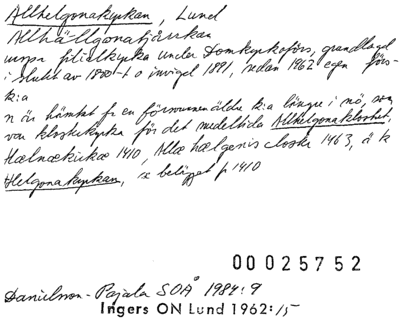 Allhelgonakyrkan, Lund
Allhällgonatjärkan
urspr filialkyrka under Domkyrkoförs, grundlagd
i slutet av 1800-t o invigd 1891, sedan 1962 egen förs-
k:a
n är hämtat fr en försvunnen äldre k:a längre i nö, som
var klosterkyrka för det medeltida Allhelgonaklostret,
Hælnækirkæ 1410, Allæ hælgenis closter 1463, ä k
Helgonakyrkan, se belägget fr 1410
00025752
Danielsson-Pajala SOÅ 1984:9
Ingers ON Lund 1962:15